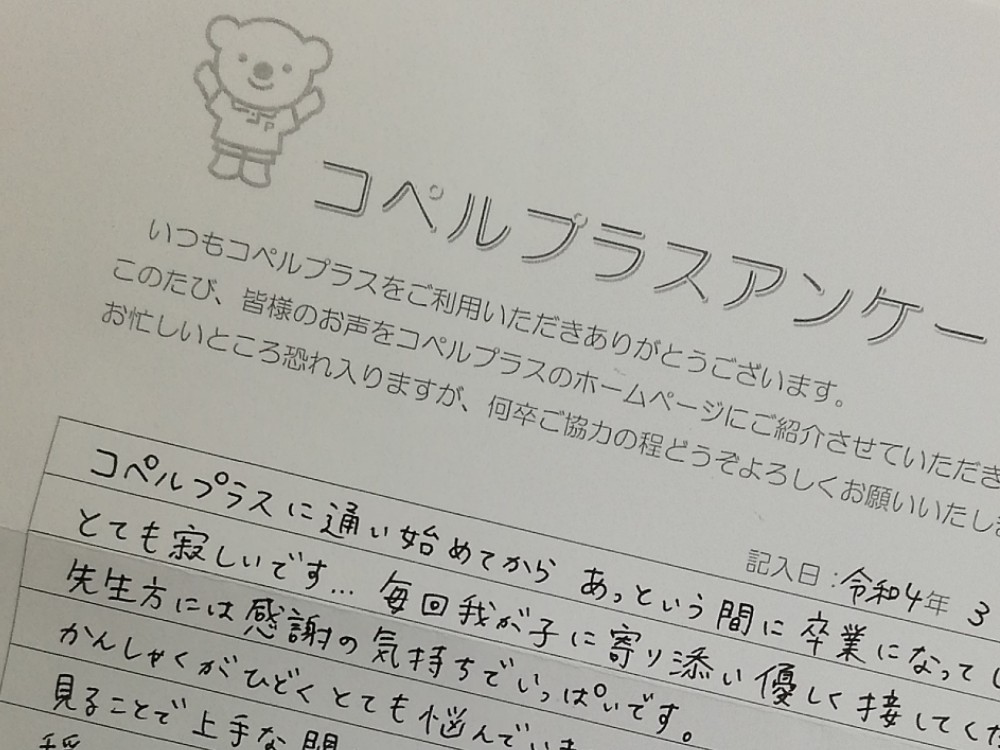 コペルプラスアンケー
いつもコペルプラスをご利用いただきありがとうございます。
このたび、皆様のお声をコペルプラスのホームページにご紹介させていただき
お忙しいところ恐れ入りますが、何卒ご協力の程どうぞよろしくお願いいたしま
記入日:令和4年 3
コペルプラスに通い始めてから あっという間に卒業になってし
とても寂しいです… 毎回我が子に寄り添い優しく接してくだ
先生方には感謝の気持ちでいっぱいです。
かんしゃくがひどくとても悩んでいま
見ることで上手な関